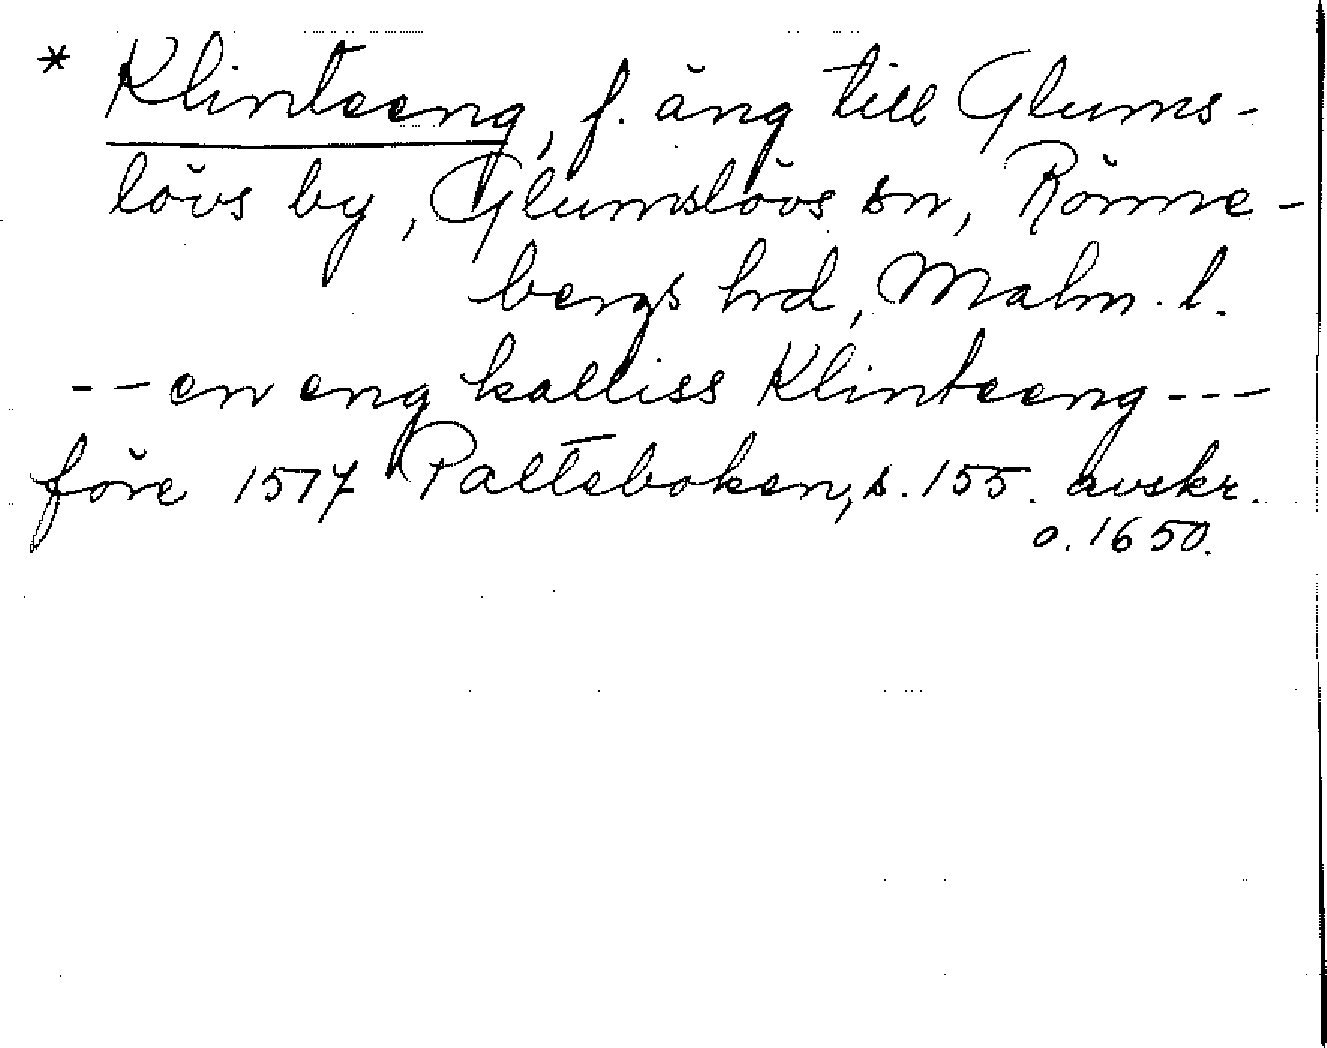 * Klinteeng, f. äng till Glums-
lövs by, Glumslövs sn, Rönne-
bergs hrd, Malm. l.
-- en eng kalliss Klinteeng ---
före 1517 Palteboken, s. 155. avskr.
o. 1650.